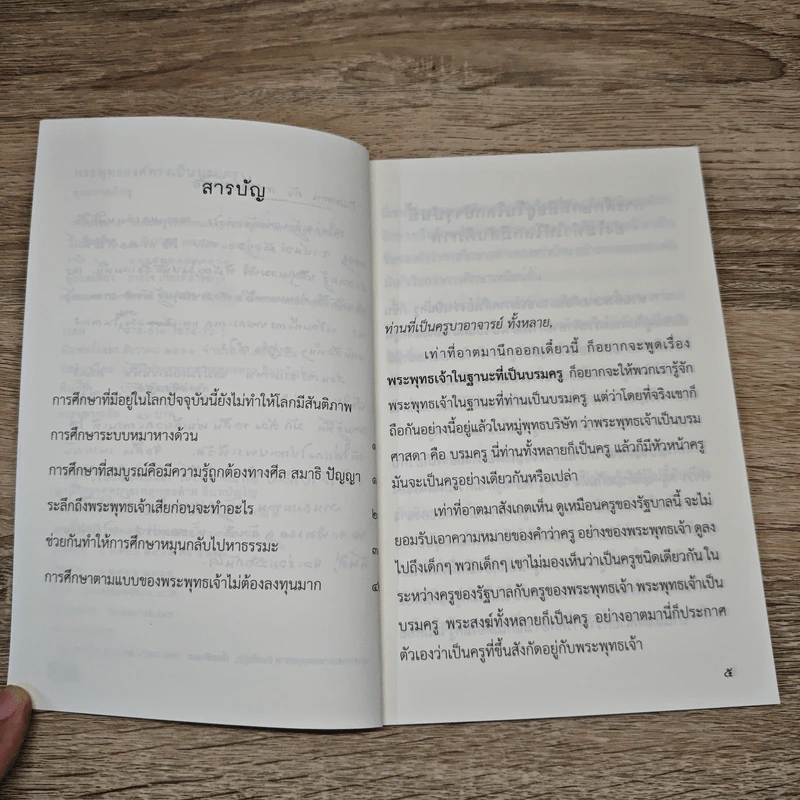 สารบัญ
การศึกษาที่มีอยู่ในโลกปัจจุบันนี้ยังไม่ทำให้โลกมีสันติภาพ
การศึกษาระบบหมาหางด้วน ๑
การศึกษาที่สมบูรณ์คือมีความรู้ถูกต้องทางศีล สมาธิ ปัญญา ๑
ระลึกถึงพระพุทธเจ้าเสียก่อนจะทำอะไร ๒
ช่วยกันทำให้การศึกษาหมุนกลับไปหาธรรมะ ๓
การศึกษาตามแบบของพระพุทธเจ้าไม่ต้องลงทุนมาก ๔
ท่านที่เป็นครูบาอาจารย์ ทั้งหลาย,
เท่าที่อาตมานึกออกเดี๋ยวนี้ ก็อยากจะพูดเรื่อง
พระพุทธเจ้าในฐานะที่เป็นบรมครู ก็อยากจะให้พวกเรารู้จัก
พระพุทธเจ้าในฐานะที่ท่านเป็นบรมครู แต่ว่าโดยที่จริงเขาก็
ถือกันอย่างนี้อยู่แล้วในหมู่พุทธบริษัท ว่าพระพุทธเจ้าเป็นบรม
ศาสดา คือ บรมครู นี่ท่านทั้งหลายก็เป็นครู แล้วก็มีหัวหน้าครู
มันจะเป็นครูอย่างเดียวกันหรือเปล่า
เท่าที่อาตมาสังเกตเห็น ดูเหมือนครูของรัฐบาลนี้ จะไม่
ยอมรับเอาความหมายของคำว่าครู อย่างของพระพุทธเจ้า ดูลง
ไปถึงเด็กๆ พวกเด็กๆ เขาไม่มองเห็นว่าเป็นครูชนิดเดียวกัน ใน
ระหว่างครูของรัฐบาลกับครูของพระพุทธเจ้า พระพุทธเจ้าเป็น
บรมครู พระสงฆ์ทั้งหลายก็เป็นครู อย่างอาตมานี่ก็ประกาศ
ตัวเองว่าเป็นครูที่ขึ้นสังกัดอยู่กับพระพุทธเจ้า
๕